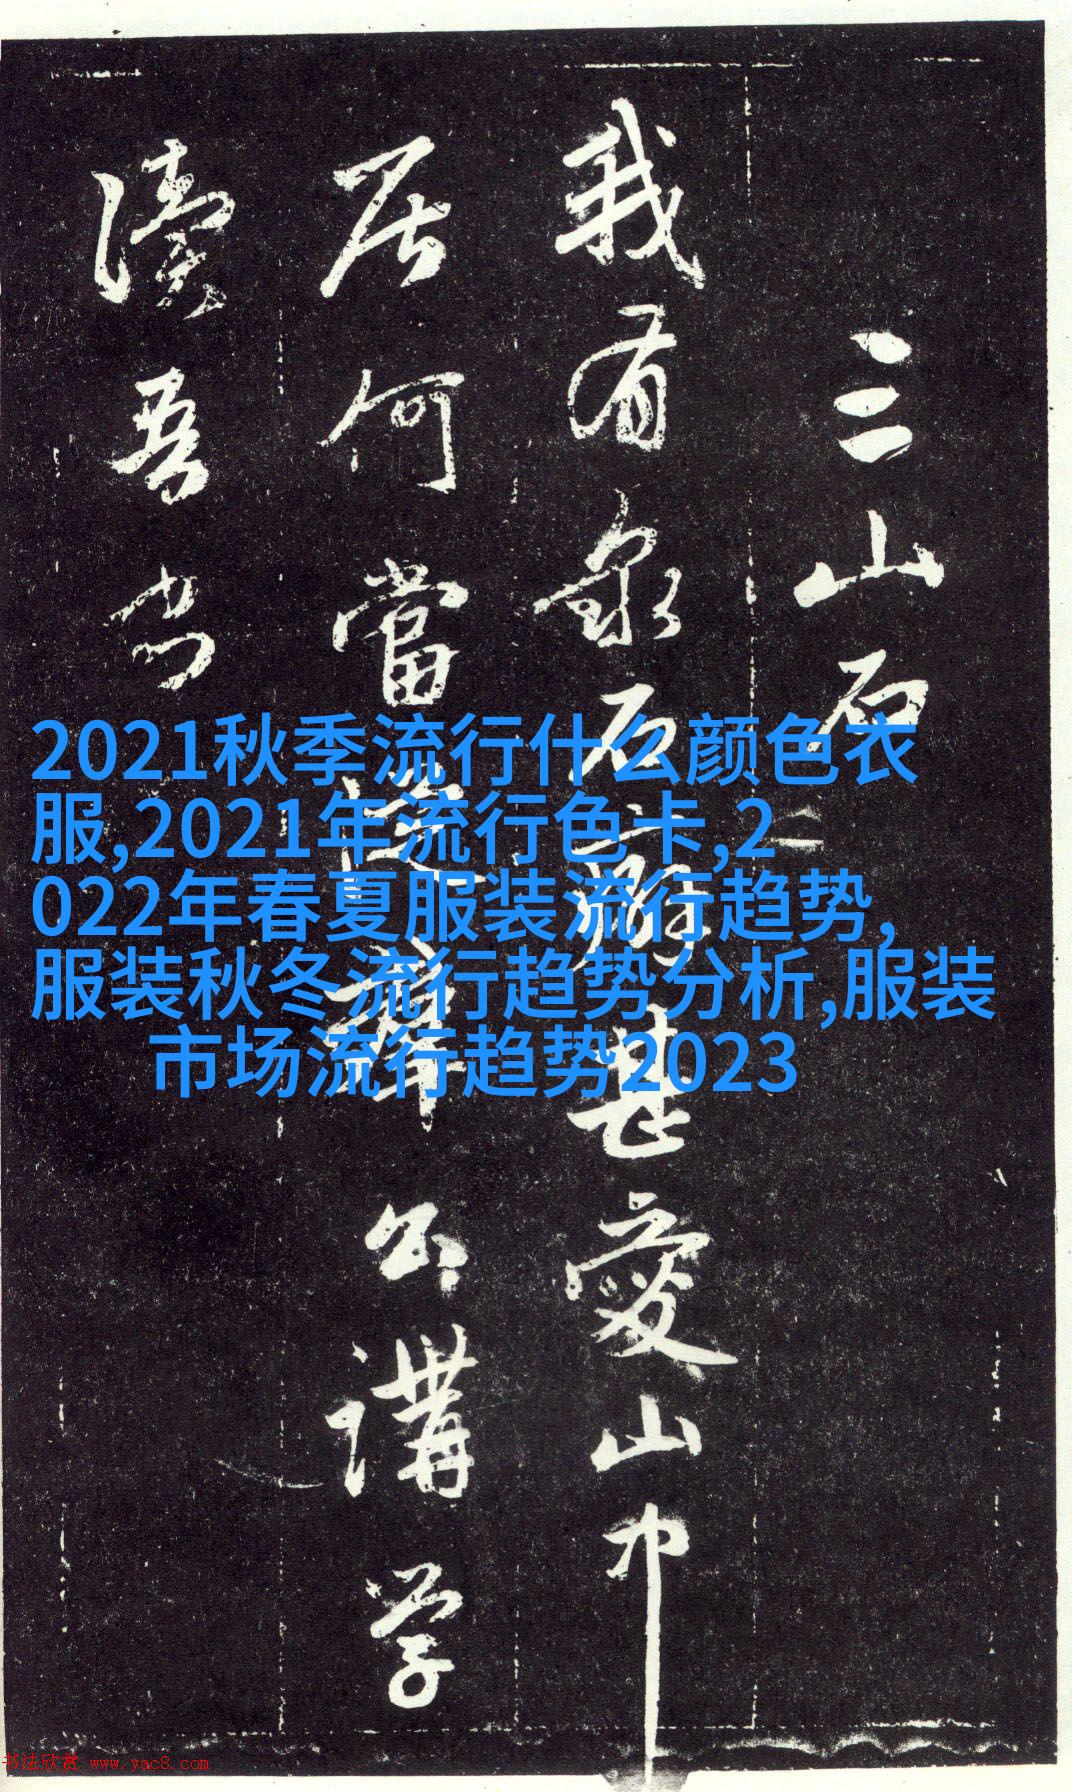 三山石
我有泉石癖甚愛山中
居何當公講学
讀吾书
2021秋季流行什么颜色衣
服,2021年流行色卡,2
022年春夏服装流行趋势,
服装秋冬流行趋势分析,服装
市场流行趋势2023
书法欣赏 www.yac8.com